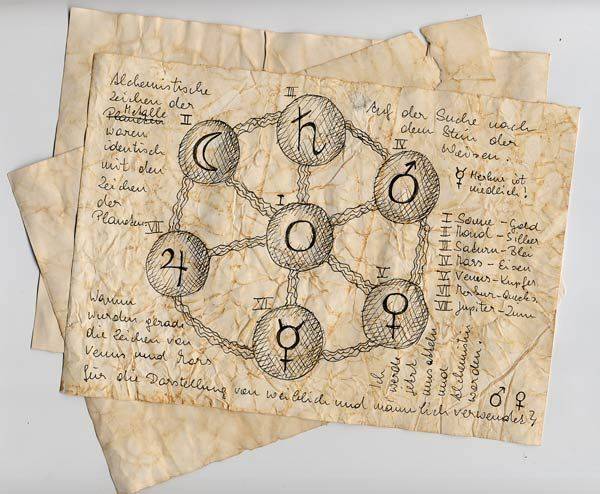 Alchemistische
Zeichen der
Metalle
Planeten
waren
identisch
mit den
Zeichen
der
Planeten.
Auf der Suche nach
dem Stein der
Weisen.
☿ Merkur ist
niedlich!
I Sonne - Gold
II Mond - Silber
III Saturn - Blei
IV Mars - Eisen
V Venus - Kupfer
VI Merkur - Quecks.
VII Jupiter - Zinn
III ♄
II ☽
IV ♂
I
VII ♃
V ♀
VI ☿
Warum
wurden gerade
die Zeichen von
Venus und Mars
für die Darstellung von weiblich und männlich verwendet?
♂ ♀
Ich
werde
jetzt
und
Alchemistin
werden!